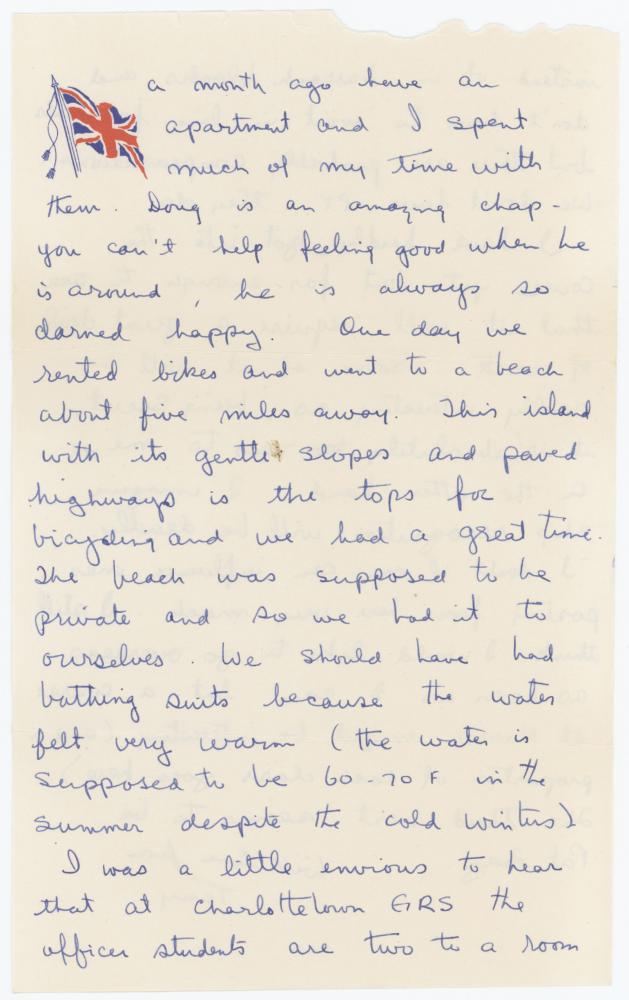 a month ago have an
apartment and I spent
much of my time with
them. Doug is an amazing chap -
you can't help feeling good when he
is around, he is always so
darned happy. One day we
rented bikes and went to a beach
about five miles away. This island
with its gentle slopes and paved
highways is the tops for
bicycling and we had a great time.
The beach was supposed to be
private and so we had it to
ourselves. We should have had
bathing suits because the water
felt very warm (the water is
supposed to be 60-70°F in the
summer despite the cold winters).
I was a little envious to hear
that at Charlottetown GRS the
officer students are two to a room